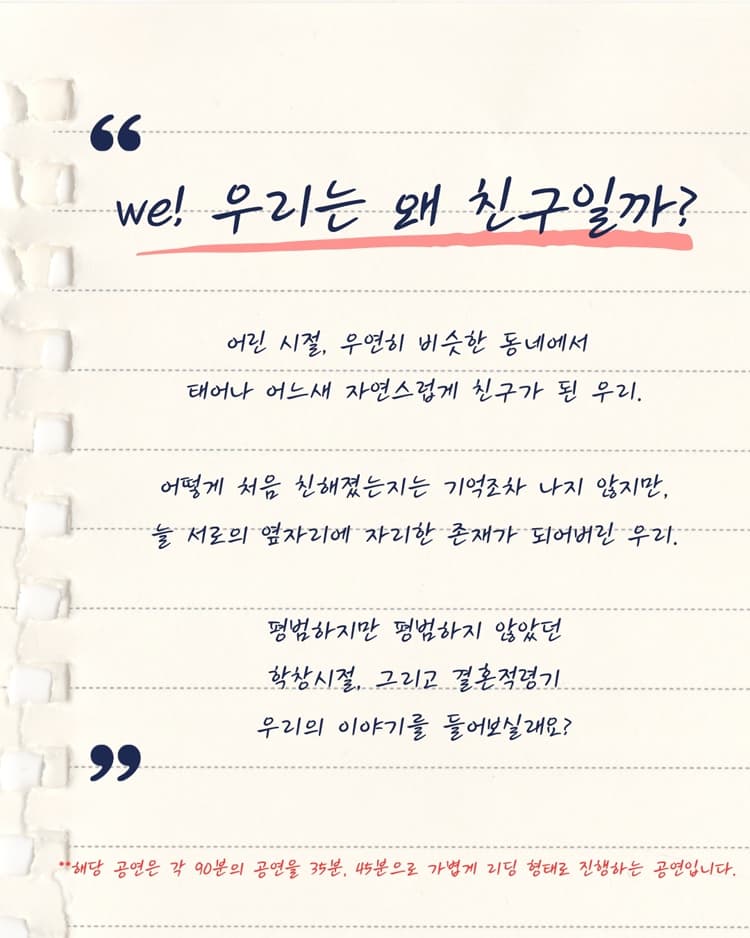 “
we! 우리는 왜 친구일까?
어린 시절, 우연히 비슷한 동네에서
태어나 어느새 자연스럽게 친구가 된 우리.
어떻게 처음 친해졌는지는 기억조차 나지 않지만,
늘 서로의 옆자리에 자리한 존재가 되어버린 우리.
평범하지만 평범하지 않았던
학창시절, 그리고 결혼적령기
우리의 이야기를 들어보실래요?
”
**해당 공연은 각 90분의 공연을 35분, 45분으로 가볍게 리딩 형태로 진행하는 공연입니다.